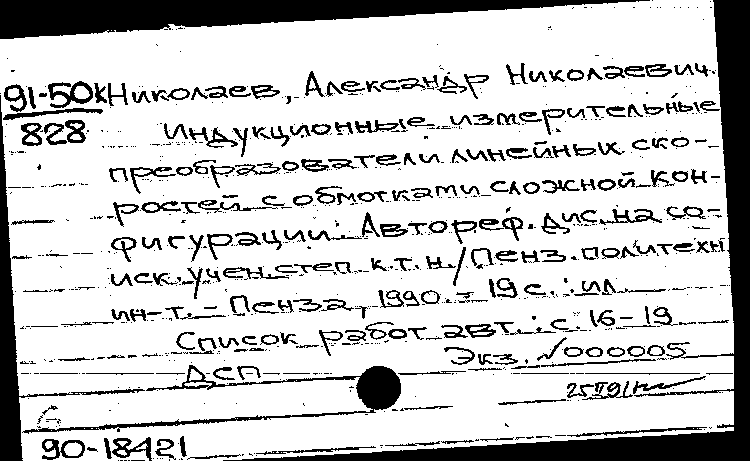 91-50к Николаев, Александр Николаевич.
828 Индукционные измерительные
преобразователи линейных ско-
ростей с обмотками сложной кон-
фигурации: Автореф. дис. на со-
иск. учен. степ. к.т.н. / Пенз. политехн.
ин-т. - Пенза, 1990. - 19 с. : ил.
Список работ авт.: с. 16-19
ДСП Экз. №000005
90-18421